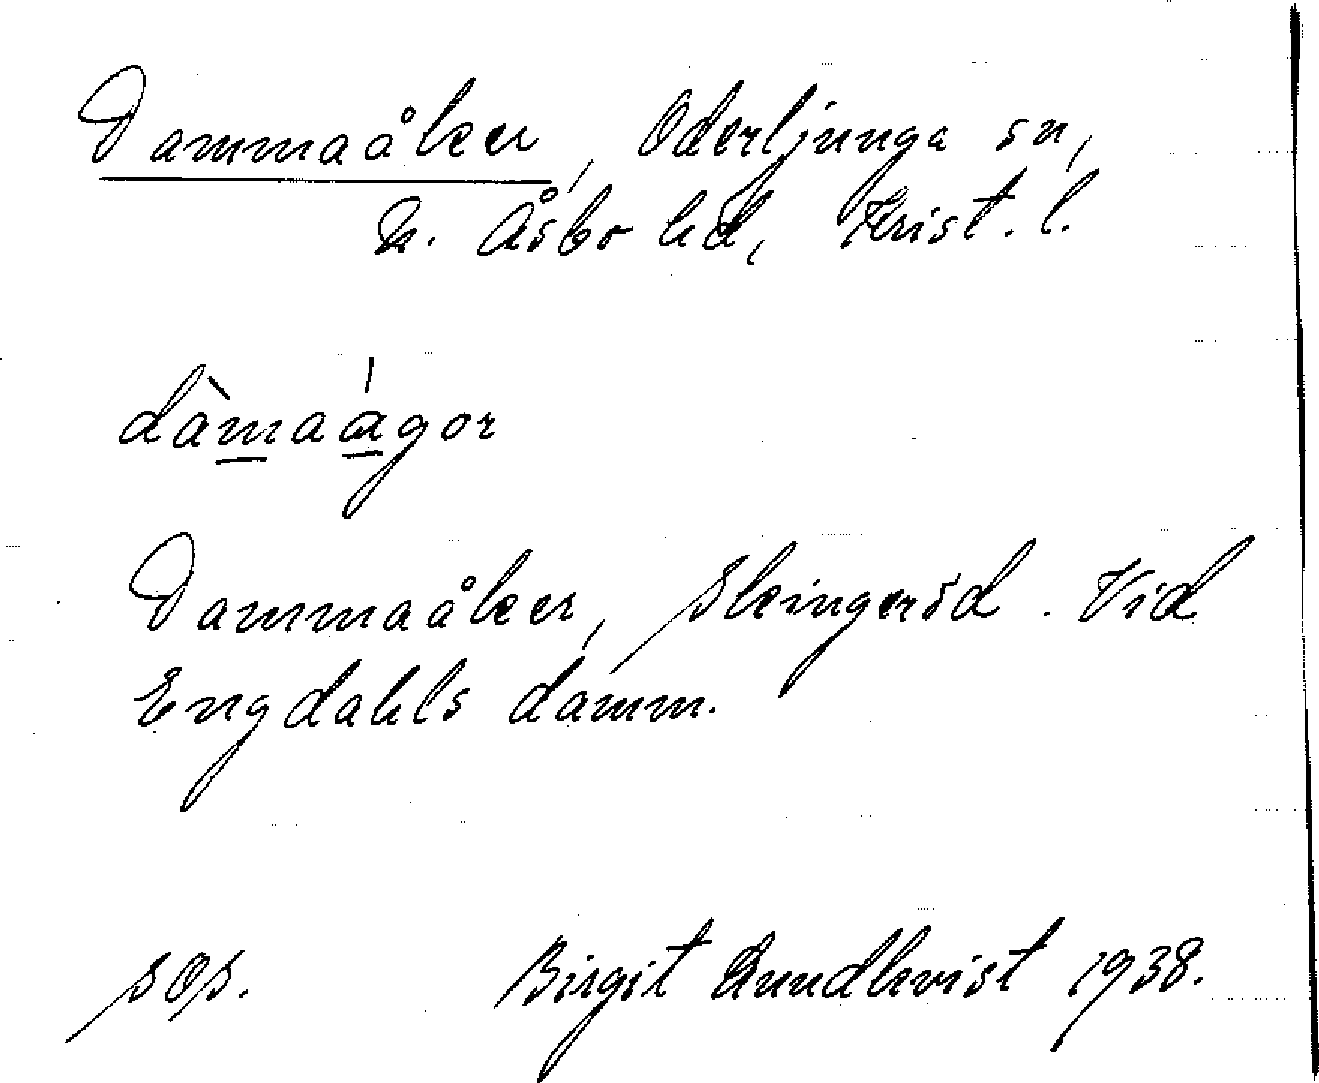 Dammaåker, Oderljunga sn,
N. Åsbo hd, Krist. l.
dàmaágor
Dammaåker, Skingeröd. Vid
Engdahls damm.
sOs. Birgit Lundkvist 1938.